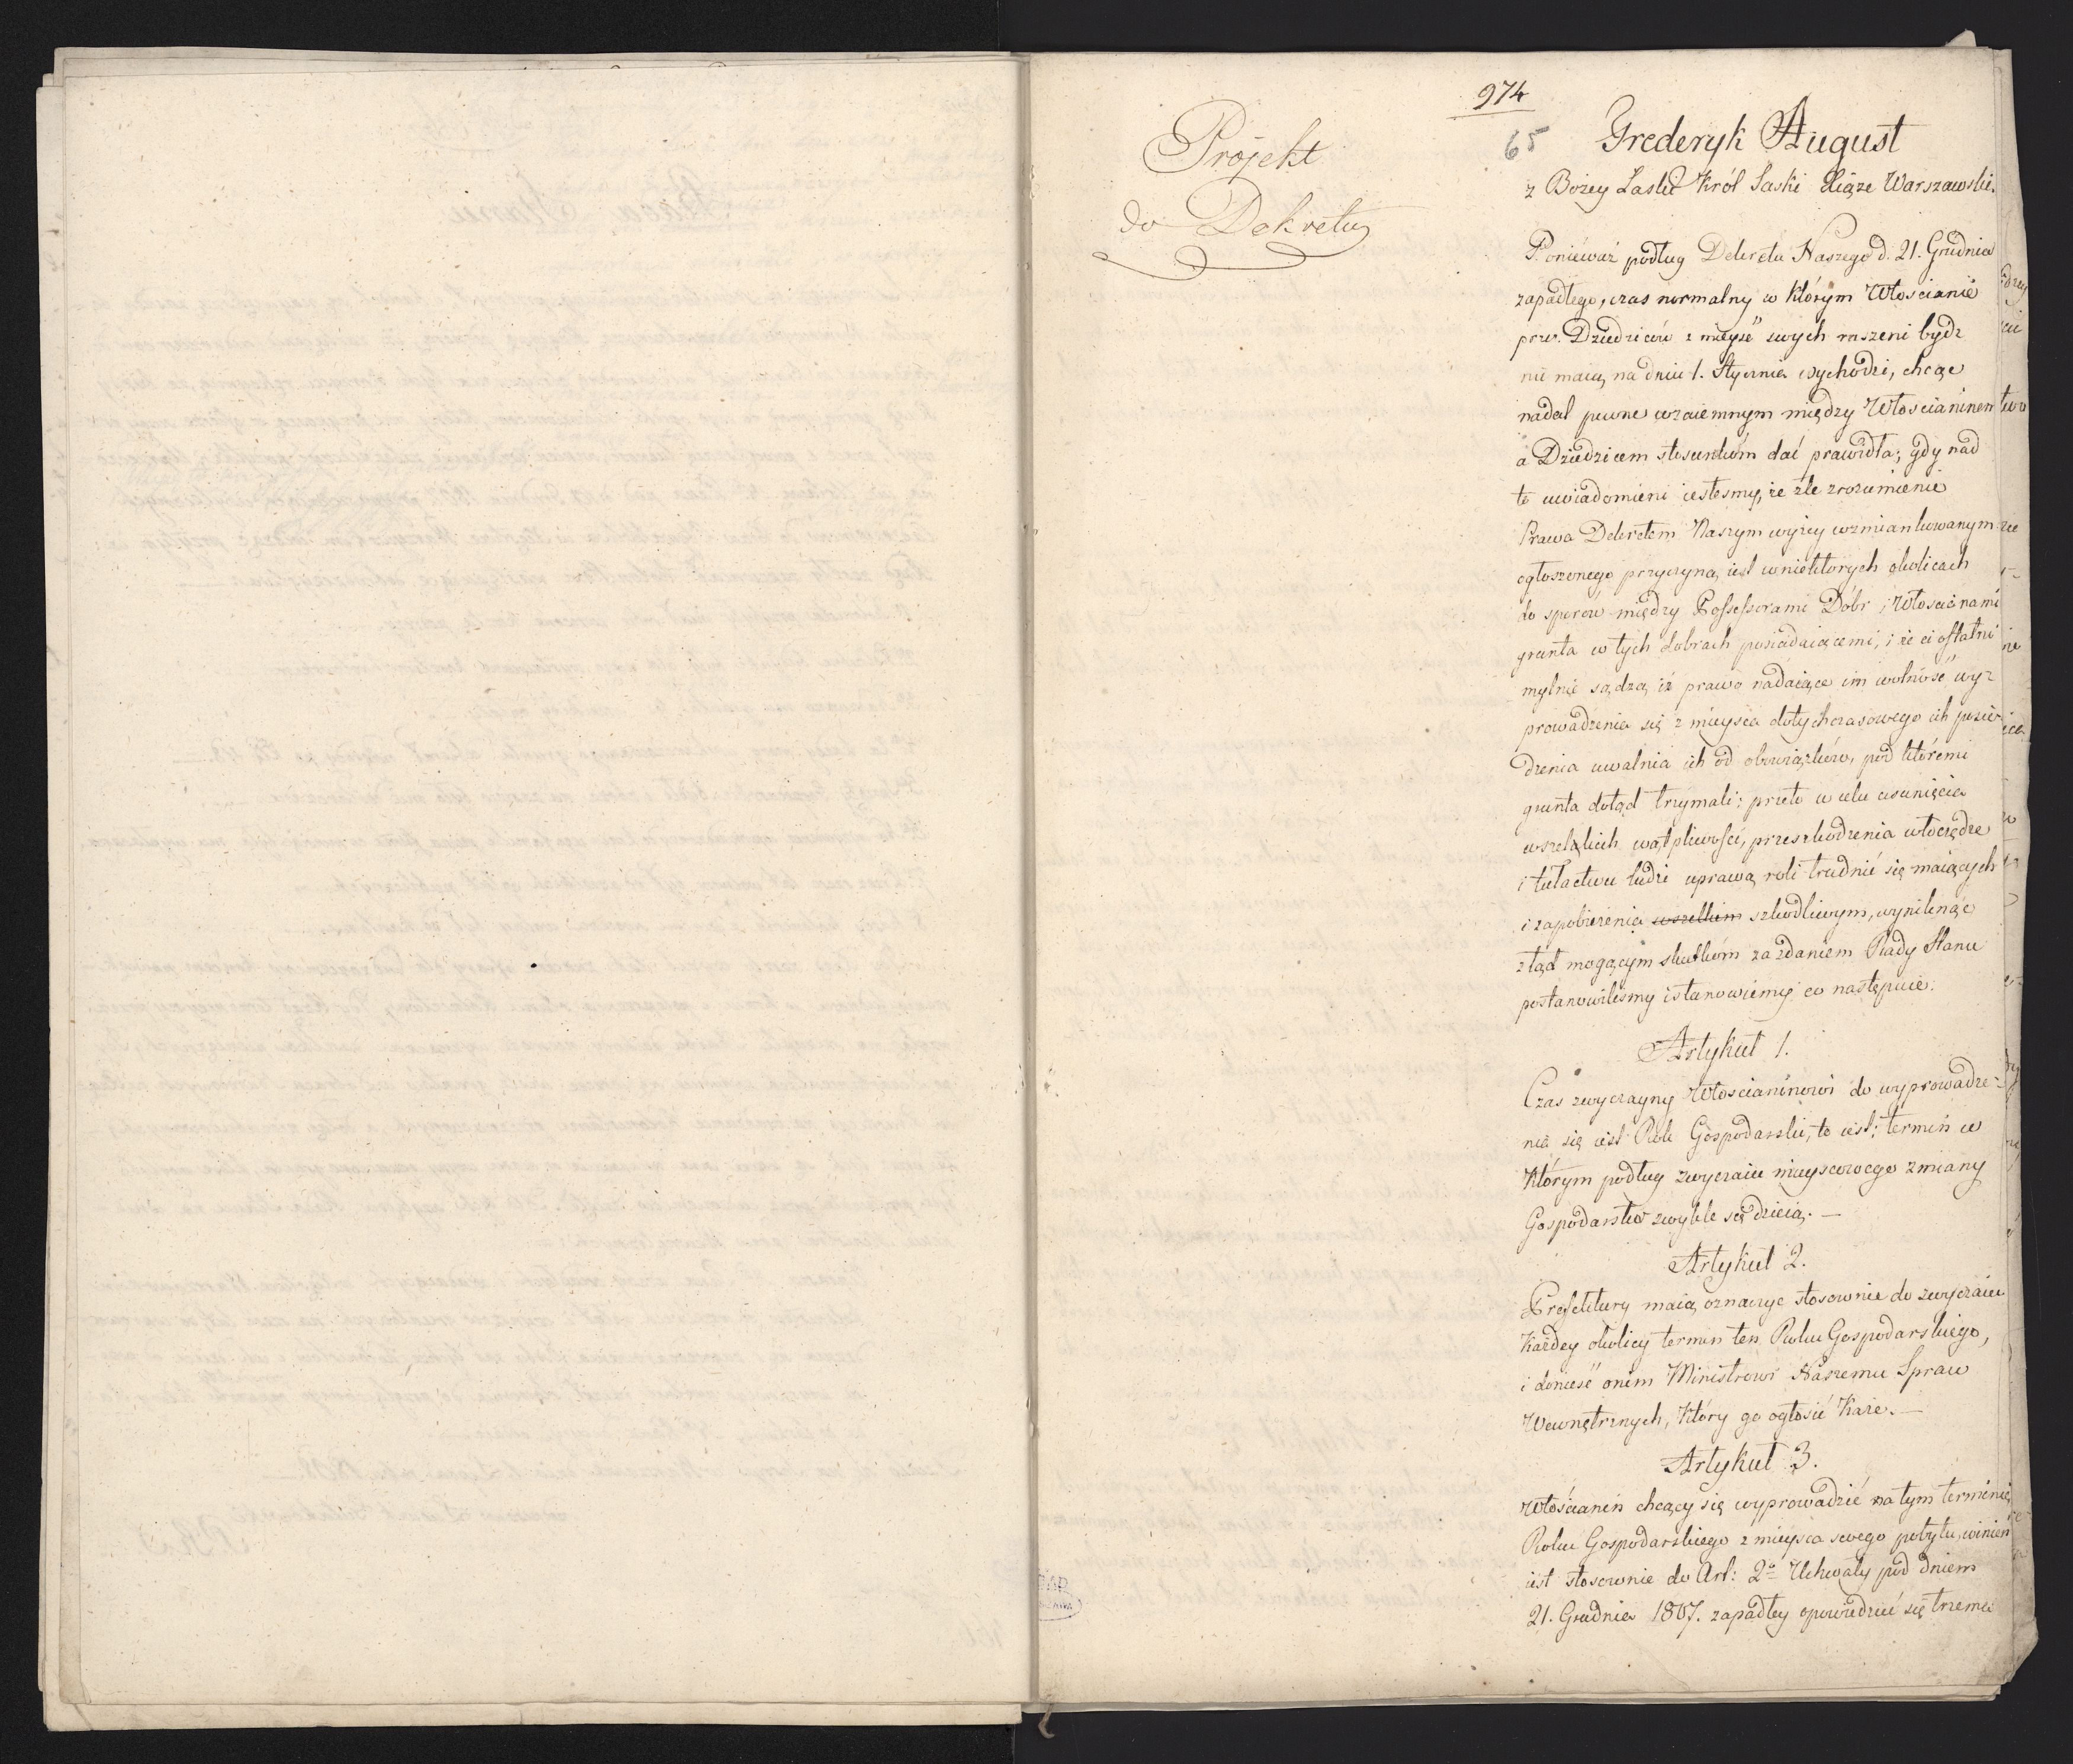 974
65
Projekt
do Dekretu
Frederyk August
z Bożey Łaski Król Saski Xiąże Warszawski.
Ponieważ podług Dekretu Naszego d. 21. Grudnia
zapadłego, czas normalny w którym Włoscianie
przez Dziedziców z mieysć swych ruszeni bydź
nie maią, na dniu 1. Stycznia wychodzi, chcąc
nadal pewne wzaiemnym między Włoscianinem
a Dziedzicem stosunkóm dać prawidła; gdy nad
to uwiadomieni iestesmy, że źle zrozumienie
Prawa Dekretem Naszym wyżey wzmiankowanym
ogłoszonego przyczyną iest w niektorych okolicach
do sporów między Possessorami Dóbr i Włoscianami
grunta w tych dobrach posiadaiącemi, i że ci ostatni
mylnie sądzą iż prawo nadaiące im wolność wy=
prowadzenia się z mieysca dotychczasowego ich posie=
dzenia uwalnia ich od obowiązków, pod któremi
grunta dotąd trzymali; przeto w celu usunięcia
wszelakich wątpliwości, przeszkodzenia włoczędze
i tułactwu ludzi uprawą roli trudnić się maiących
i zapobieżenia wszelkim szkodliwym, wyniknąć
ztąd mogącym skutkóm za zdaniem Rady Stanu
postanowilismy i stanowiemy co następuie:
Artykuł 1.
Czas zwyczayny Włoscianinowi do wyprowadze=
nia się iest Rok Gospodarski, to iest; termin w
którym podług zwyczaiu mieyscowego zmiany
Gospodarstw zwykle się dzieią. —
Artykuł 2.
Prefektury maią oznaczyc stosownie do zwyczaiu
każdey okolicy termin ten Roku Gospodarskiego,
i donieść onem Ministrowi Naszemu Spraw
Wewnętrznych, który go ogłosić każe. —
Artykuł 3.
Włościanin chcący się wyprowadzić na tym terminie
Roku Gospodarskiego z mieysca swego pobytu, winien
iest stosownie do Art: 2º Uchwały pod dniem
21. Grudnia 1807. zapadłey opowiedzieć się trzema